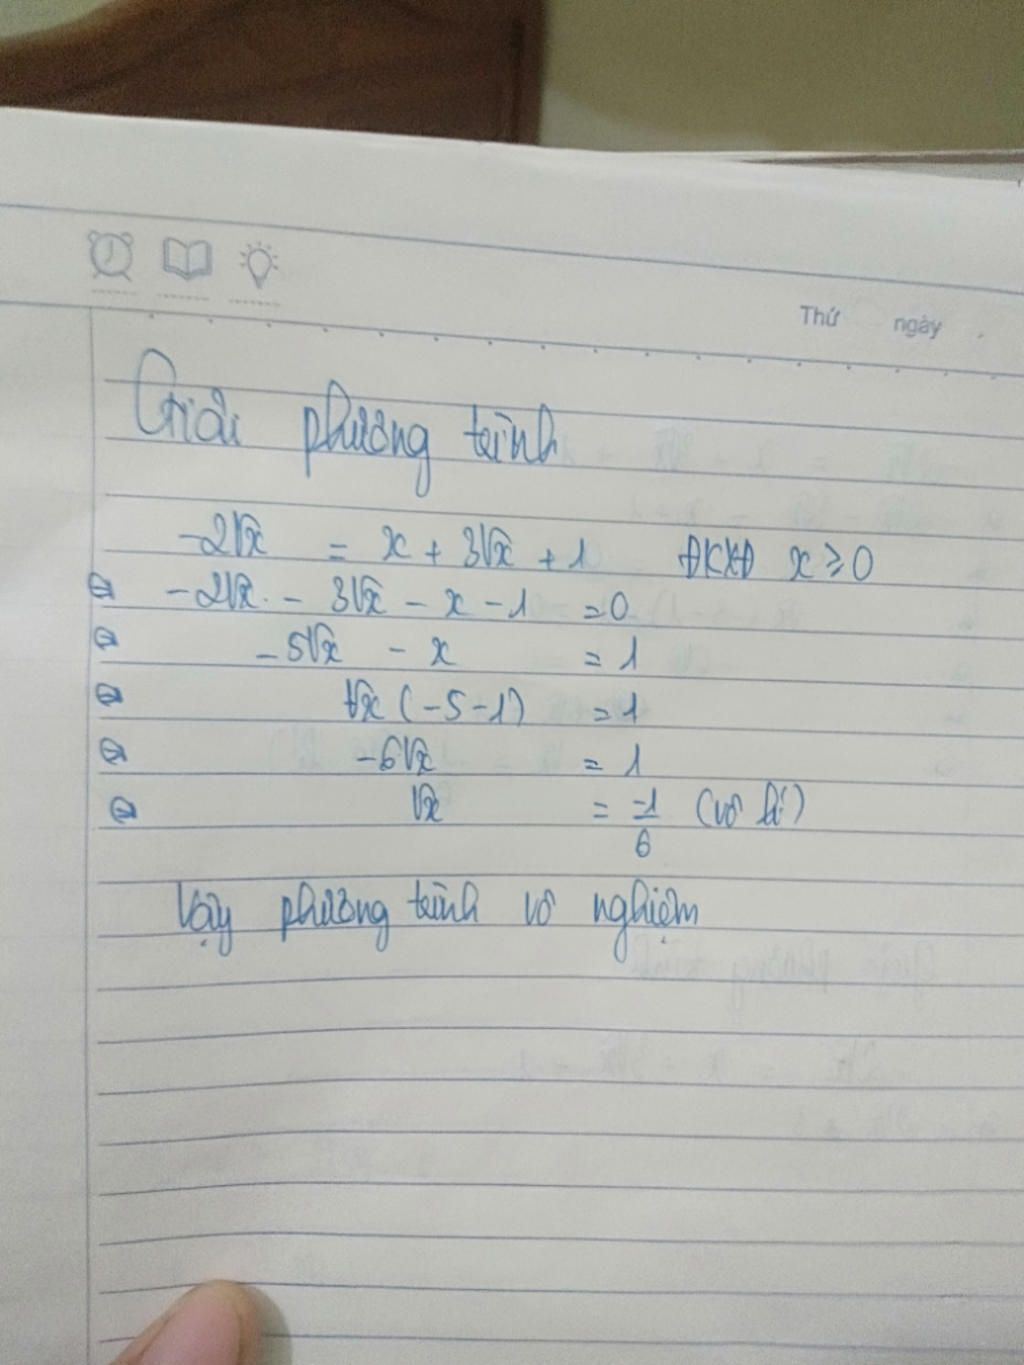 Thứ ngày
Giải phương trình
-2√x = x + 3√x + 1 ĐKXĐ x ≥ 0
⇔ -2√x - 3√x - x - 1 = 0
⇔ -5√x - x = 1
⇔ √x (-5-1) = 1
⇔ -6√x = 1
⇔ √x = -1/6 (vô lí)
Vậy phương trình vô nghiệm